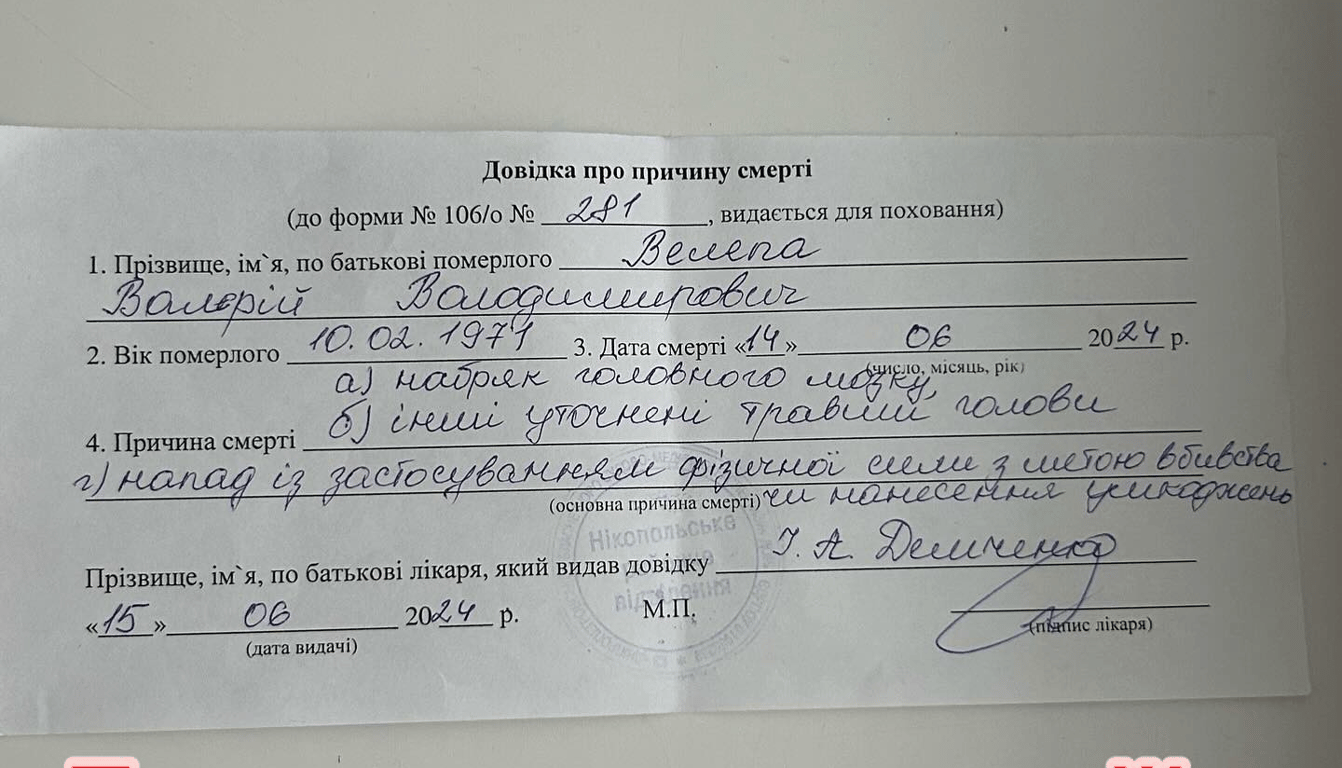 Довідка про причину смерті
(до форми № 106/о № 281, видається для поховання)
1. Прізвище, ім`я, по батькові померлого Велепа
Валерій Володимирович
2. Вік померлого 10.02.1971 3. Дата смерті «14» 06 2024 р.
(число, місяць, рік)
а) набряк головного мозку,
б) інші уточнені травми голови
4. Причина смерті
г) напад із застосуванням фізичної сили з метою вбивства
(основна причина смерті) чи нанесення ушкоджень
Нікопольське
відділення
Прізвище, ім`я, по батькові лікаря, який видав довідку І. А. Демченко
«15» 06 2024 р. М.П.
(дата видачі) (підпис лікаря)